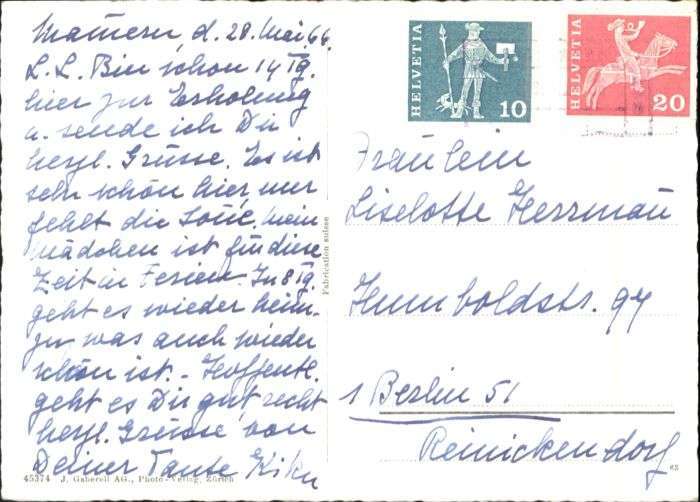 Mamern, d. 28. Mai 66.
L. L. Bin schon 14 Tg.
hier zur Erholung
u. sende ich Dir
herzl. Grüsse. Es ist
sehr schön hier, nur
fehlt die Sonne. Mein
Mädchen ist für diese
Zeit in Ferien. In 8 Tg.
geht es wieder heim-
zu was auch wieder
schön ist. - Hoffentl.
geht es Dir gut, recht
herzl. Grüsse von
Deiner Tante Kiku
45374 J. Gaberell AG., Photo-Verlag, Zürich
Fabrication suisse
HELVETIA
10
HELVETIA
20
Fräulein
Liselotte Herrmann
Humboldstr. 94
1 Berlin 51
Reinickendorf